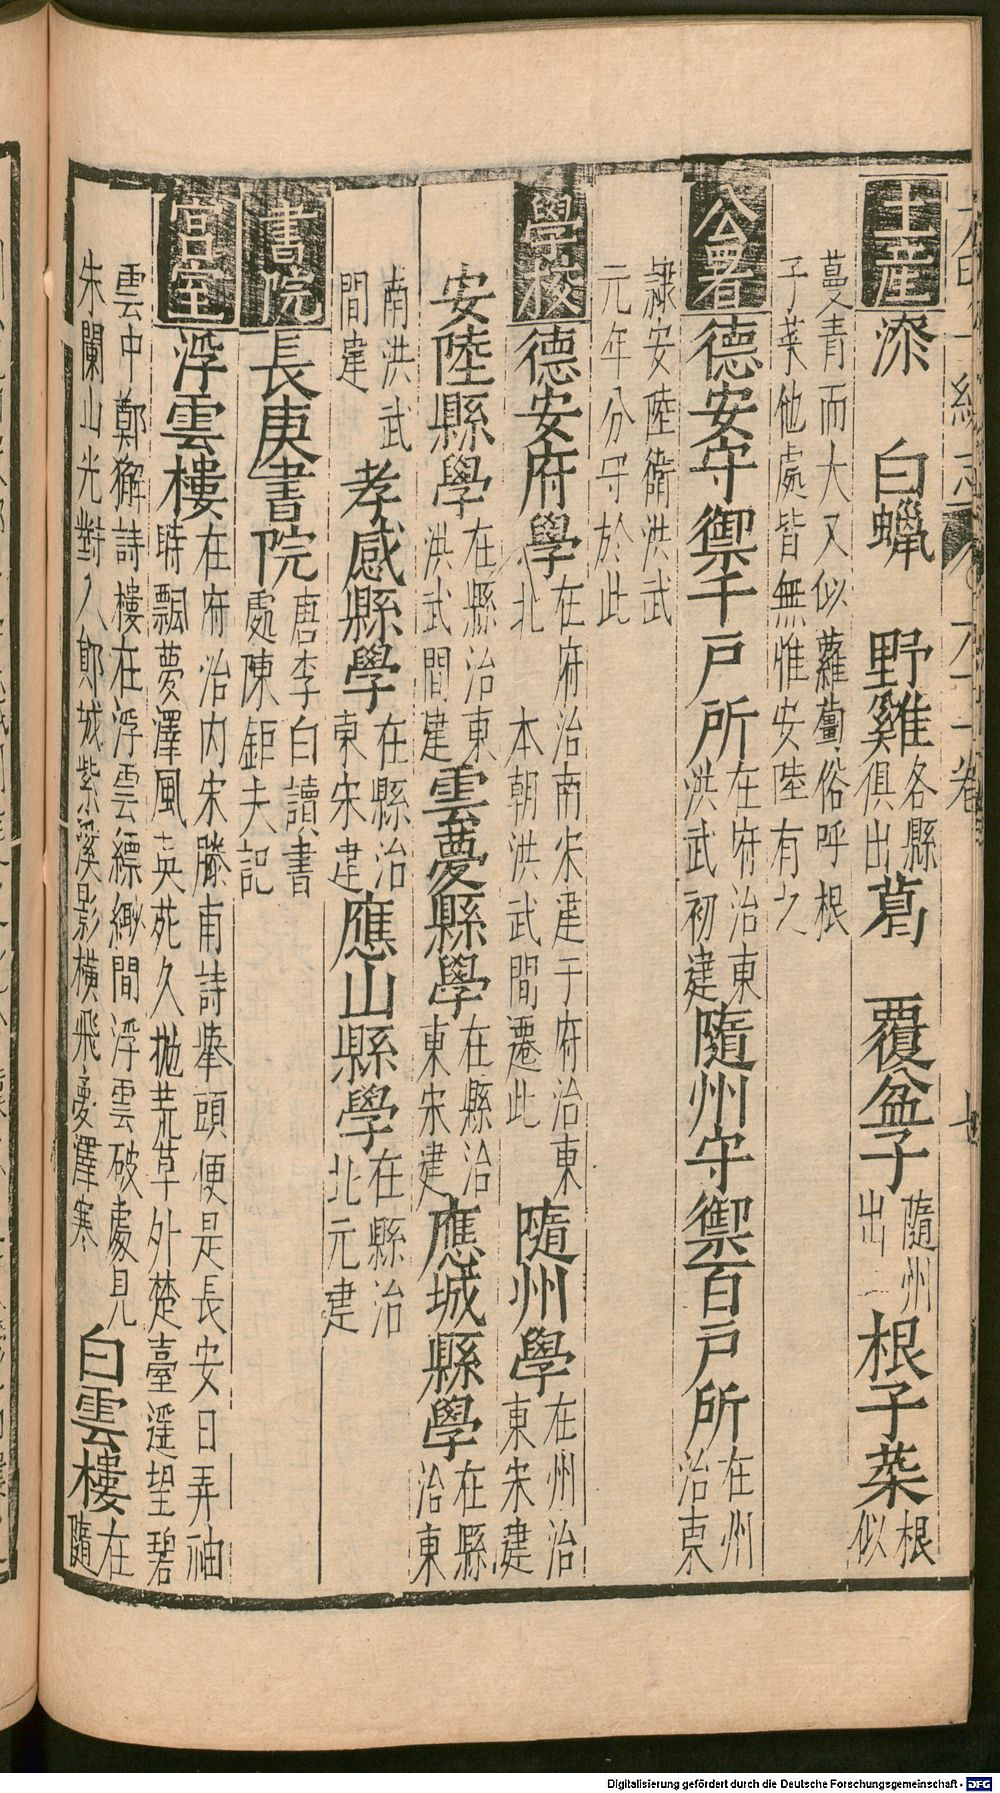 土產漆　白蠟　野雞各縣俱出葛　覆盆子隨州出根子菜根似
蔓青而大又似蘿蔔俗呼根子菜他處皆無惟安陸有之
公署德安守禦千戶所在府治東洪武初建隨州守禦百戶所在州治東
隷安陸衛洪武元年分守於此
學校德安府學在府治南宋建于府治東北　本朝洪武間遷此隨州學在州治東宋建
安陸縣學在縣治東洪武間建雲夢縣學在縣治東宋建應城縣學在縣治東
南洪武間建孝感縣學在縣治東宋建應山縣學在縣治北元建
書院長庚書院唐李白讀書處陳鉅夫記
宮室浮雲樓在府治內宋滕甫詩舉頭便是長安日弄袖時飄夢澤風英苑久拋荒草外楚臺遥望碧
雲中鄭獬詩樓在浮雲縹緲間浮雲破處見朱闌山光對入鄖城紫溪影橫飛夢澤寒白雲樓在隨
Digitalisierung gefördert durch die Deutsche Forschungsgemeinschaft - DFG